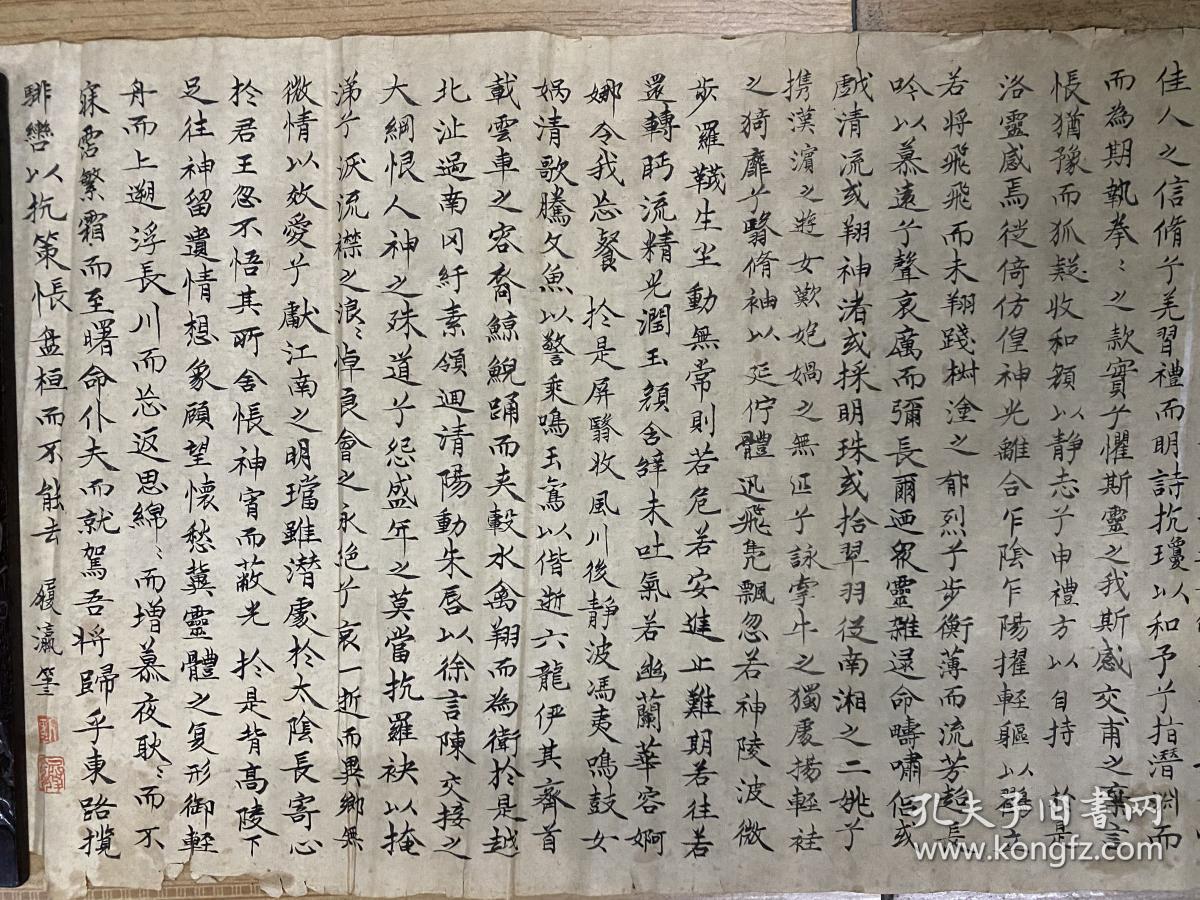 佳人之信脩兮羌習禮而明詩抗瓊以和予兮指潛淵而
而為期執拳〻之款實兮懼斯靈之我斯感交甫之棄言
悵猶豫而狐疑收和顏以静志兮申禮方以自持 於是
洛靈感焉徙倚仿偟神光離合乍陰乍陽擢輕軀以鶴立
若將飛飛而未翔踐椒塗之郁烈兮步衡薄而流芳超長
吟以慕遠兮聲哀厲而彌長爾迺衆靈雜遝命疇嘯侶或
戲清流或翔神渚或採明珠或拾翠羽從南湘之二姚兮
携漢濵之遊女歎匏媧之無匹兮詠牽牛之獨處揚輕袿
之猗靡兮翳脩袖以延佇體迅飛鳧飄忽若神陵波微
步羅韈生尘動無常則若危若安進止難期若往若
還轉眄流精光潤玉顏含辝未吐氣若幽蘭華容婀
娜令我忘餐 於是屏翳收風川後靜波馮夷鳴鼓女
媧清歌騰文魚以警乘鳴玉鸞以偕逝六龍伊其齊首
載雲車之容裔鯨鯢踊而夹轂水禽翔而為衛於是越
北沚過南冈紆素領迴清陽動朱唇以徐言陳交接之
大綱恨人神之殊道兮怨盛年之莫當抗羅袂以掩
涕兮淚流襟之浪〻悼良會之永绝兮哀一逝而異鄉無
微情以效愛兮獻江南之明璫雖潜處於太陰長寄心
於君王忽不悟其所舍悵神宵而蔽光 於是背高陵下
足往神留遺情想象顧望懷愁冀靈體之复形御輕
舟而上遡浮長川而忘返思綿〻而增慕夜耿〻而不
寐霑繁霜而至曙命仆夫而就駕吾将歸乎東路攬
騑轡以抗策悵盘桓而不能去
孔夫子旧書网
www.kongfz.com